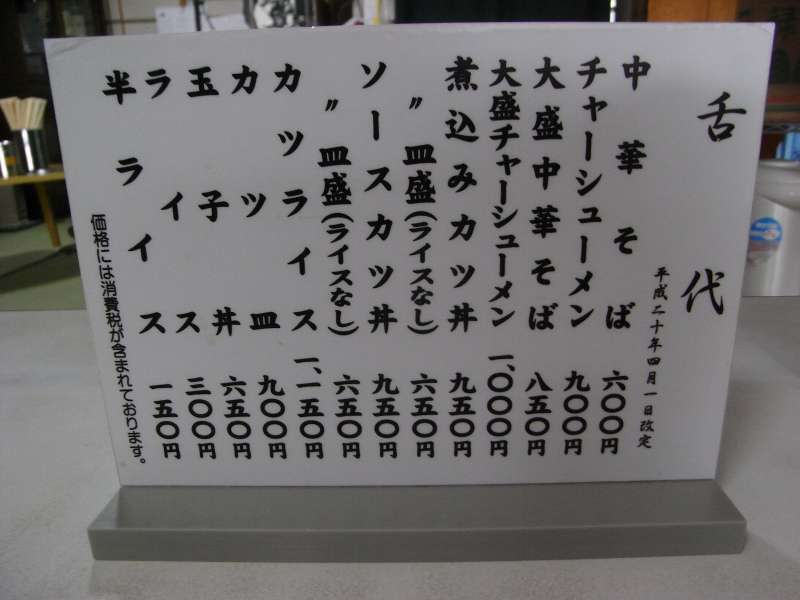 舌代
平成二十年四月一日改定
中華そば 六〇〇円
チャーシューメン 九〇〇円
大盛中華そば 八五〇円
大盛チャーシューメン 一、〇〇〇円
煮込みカツ丼 九五〇円
〃皿盛(ライスなし) 六五〇円
ソースカツ丼 九五〇円
〃皿盛(ライスなし) 六五〇円
カツライス 一、一五〇円
カツ皿 九〇〇円
玉子丼 六五〇円
ライス 三〇〇円
半ライス 一五〇円
価格には消費税が含まれております。